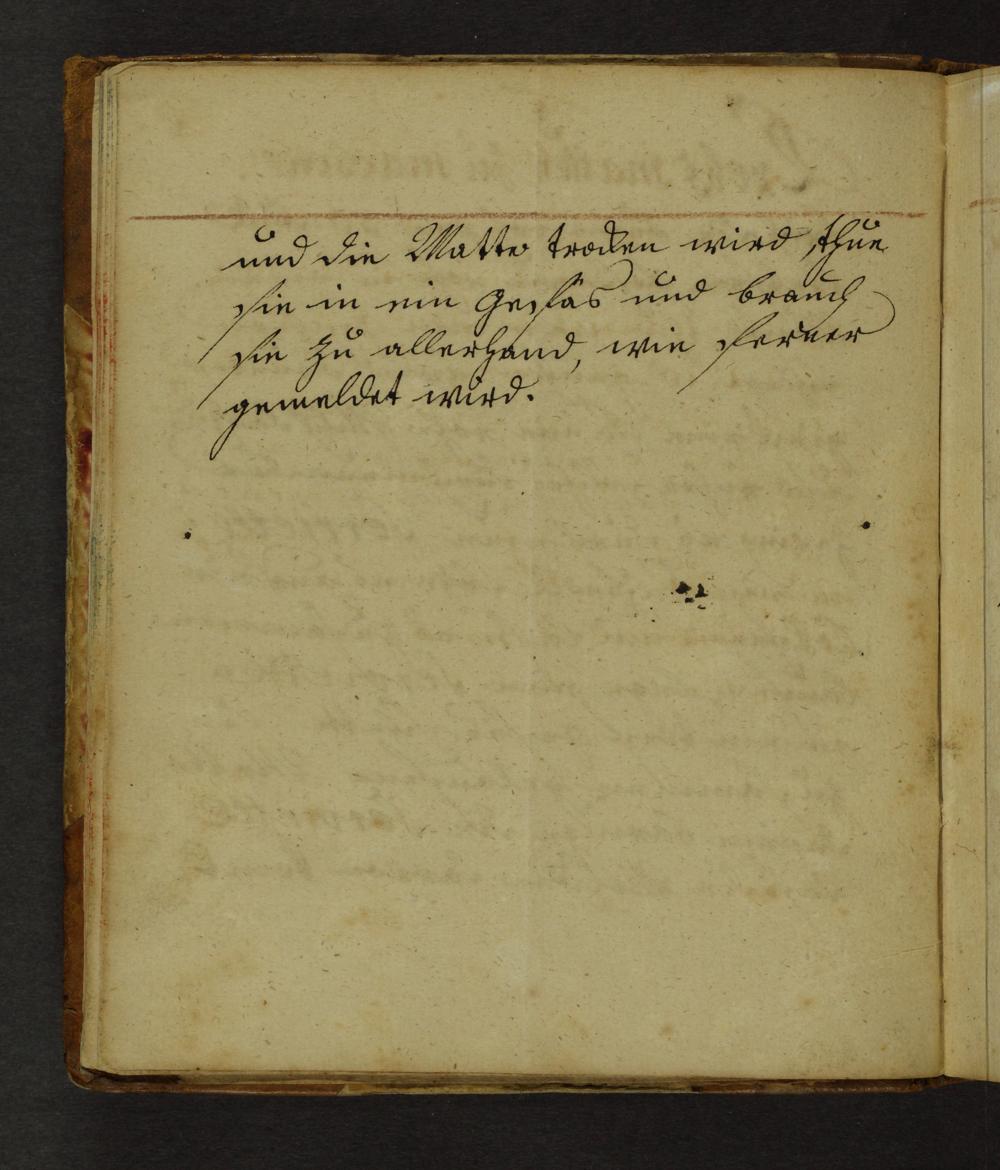 und die Matte trocken wird, thue
sie in ein Gefäs und brauch
sie zu allerhand, wie ferner
gemeldet wird.